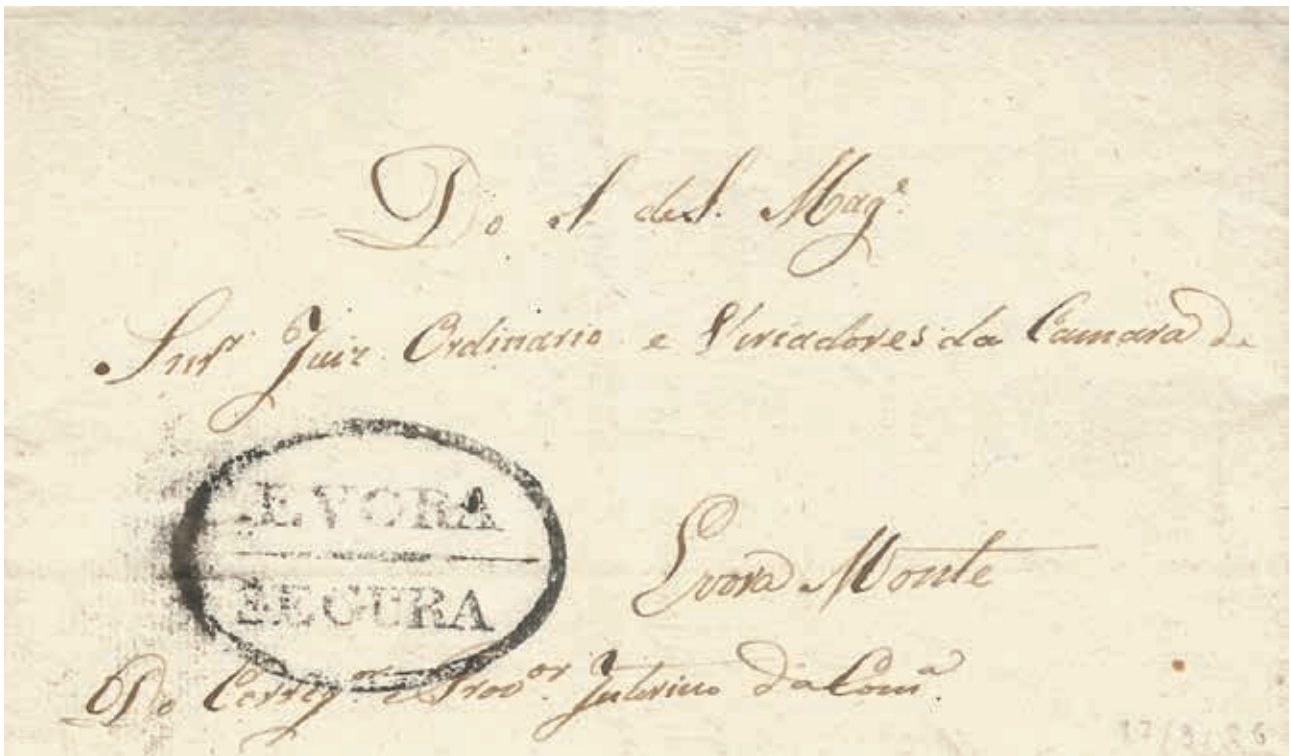 Do S. de S. Mag.e
Snr.s Juiz Ordinario e Veriadores da Camara de
EVORA
SEGURA
Evora Monte
Do Correg.or e Prov.or Interino da Com.a